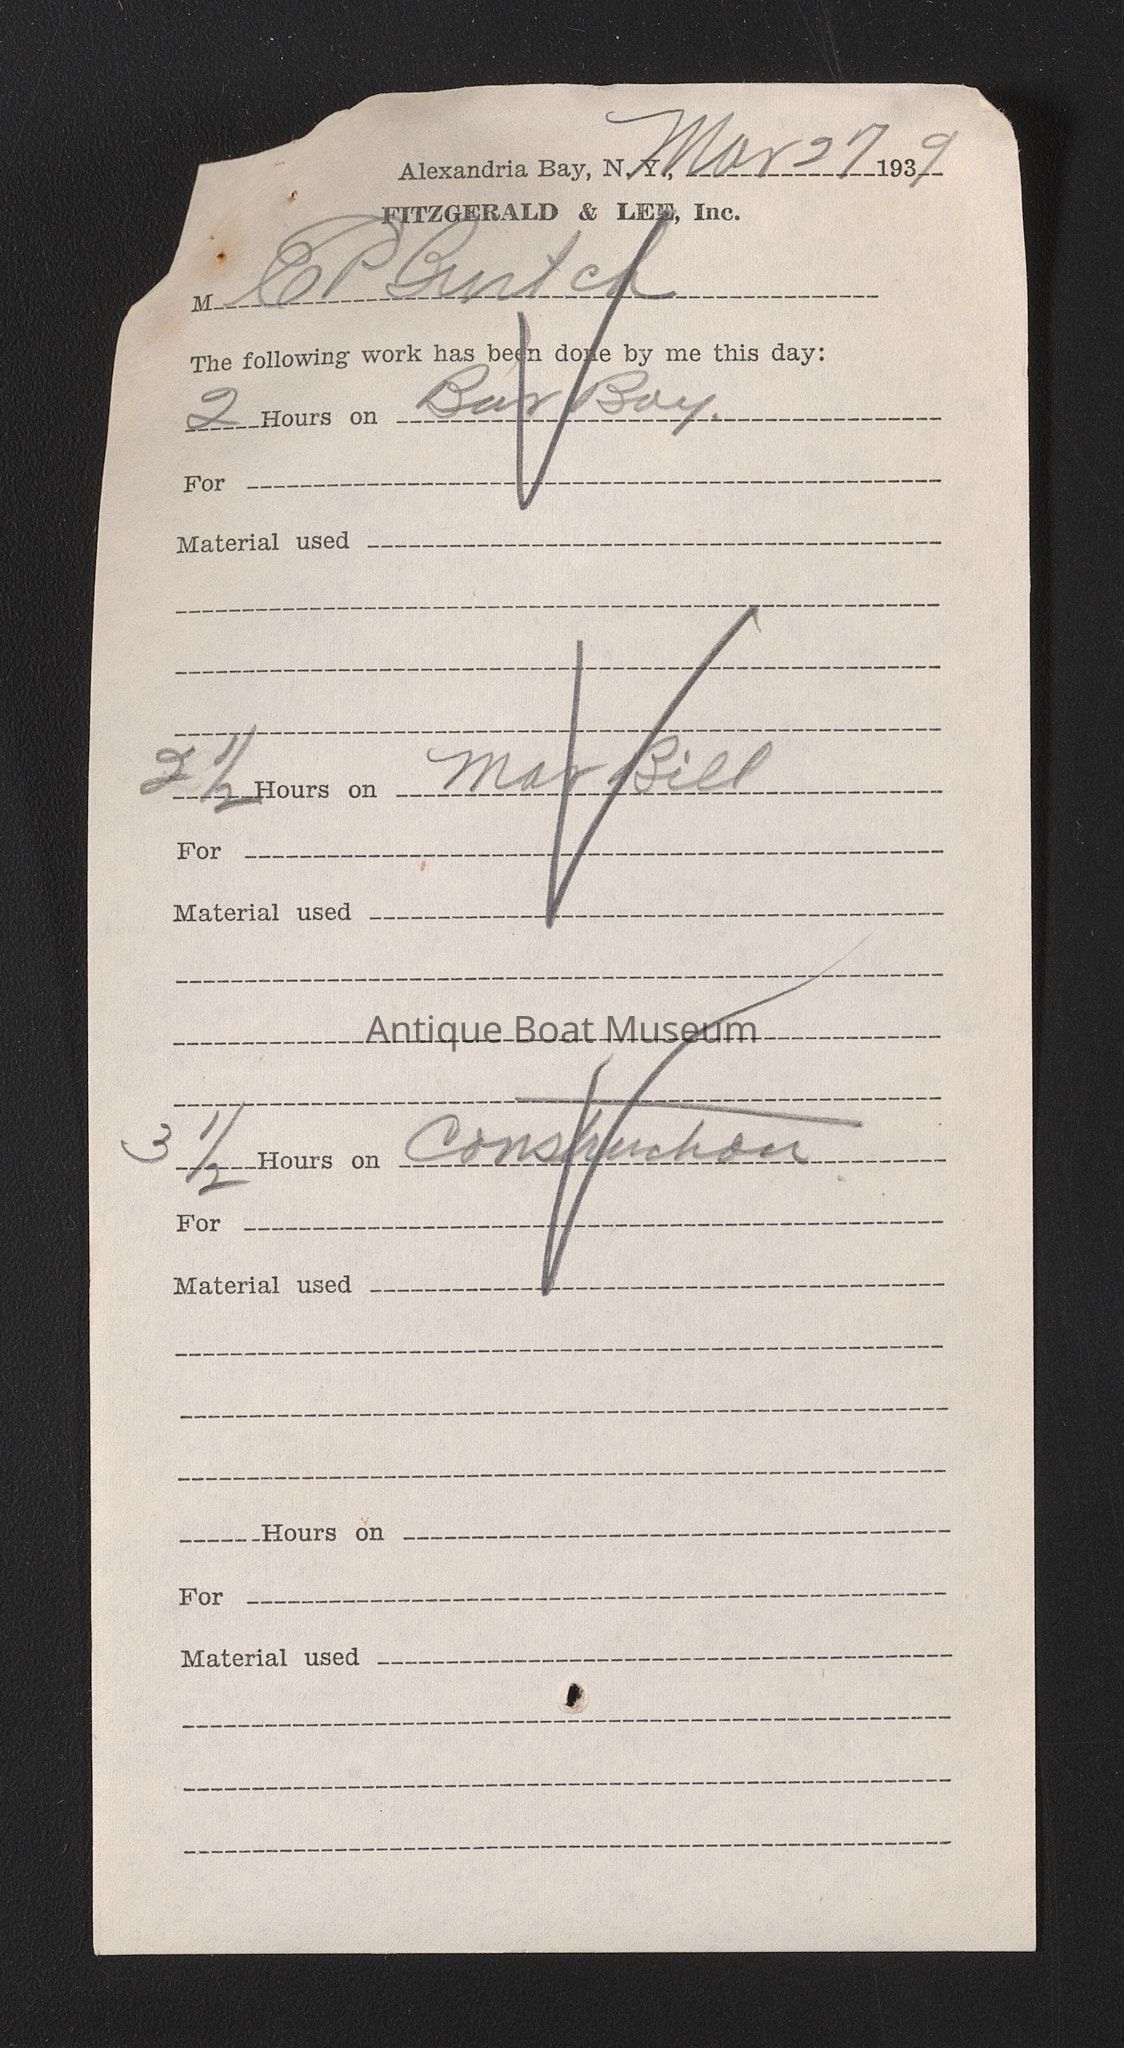 Alexandria Bay, N. Y., Mar 27 1939
FITZGERALD & LEE, Inc.
M E P Gurtch
The following work has been done by me this day:
2 Hours on Bar Boy.
For
Material used
2 1/2 Hours on Mar Bill
For
Material used
Antique Boat Museum
3 1/2 Hours on Construction
For
Material used
Hours on
For
Material used